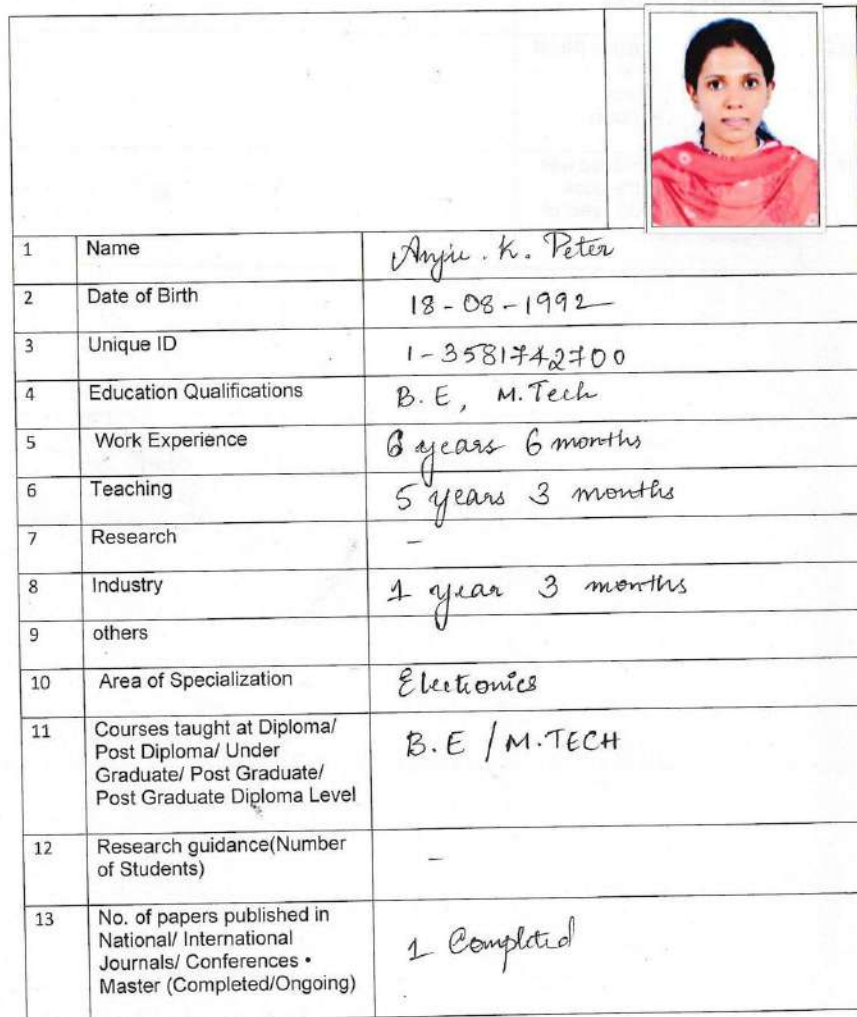 1 Name Anju . K. Peter
2 Date of Birth 18-08-1992
3 Unique ID 1-3581742700
4 Education Qualifications B.E, M.Tech
5 Work Experience 6 years 6 months
6 Teaching 5 years 3 months
7 Research -
8 Industry 1 year 3 months
9 others
10 Area of Specialization Electronics
11 Courses taught at Diploma/ B.E / M.TECH
Post Diploma/ Under
Graduate/ Post Graduate/
Post Graduate Diploma Level
12 Research guidance(Number -
of Students)
13 No. of papers published in
National/ International
Journals/ Conferences • 1 Completed
Master (Completed/Ongoing)